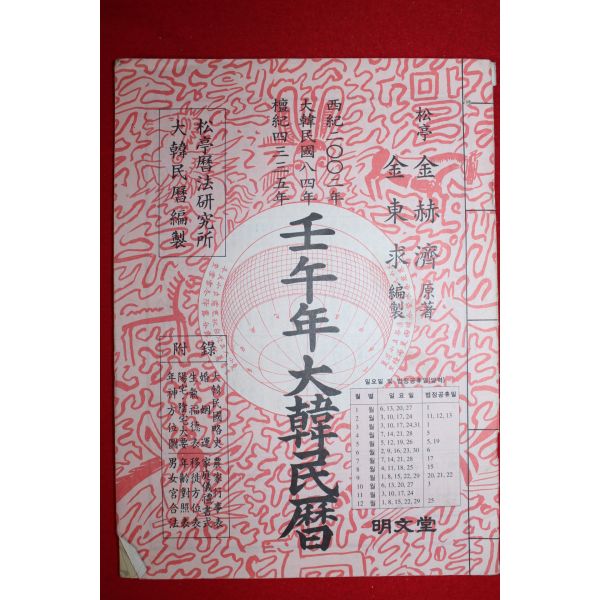 松亭 金赫濟 原著
金東求 編製
西紀二〇〇二年
大韓民國八四年
檀紀四三三五年
壬午年大韓民曆
松亭曆法研究所
大韓民曆編製
附錄
大韓民國略史
婚姻運
生氣福德表
陽宅陰宅大要
年神方位圖
農家行事表
家庭儀禮書式
移徙方位表
年齡對照表
男女宮合法
일요일 및 법정공휴일(양력)
월 별 일 요 일 법정공휴일
1 월 6, 13, 20, 27 1
2 월 3, 10, 17, 24 11, 12, 13
3 월 3, 10, 17, 24,31 1
4 월 7, 14, 21, 28 5
5 월 5, 12, 19, 26 5, 19
6 월 2, 9, 16, 23, 30 6
7 월 7, 14, 21, 28 17
8 월 4, 11, 18, 25 15
9 월 1, 8, 15, 22, 29 20, 21, 22
10 월 6, 13, 20, 27 3
11 월 3, 10, 17, 24
12 월 1, 8, 15, 22, 29 25
明文堂